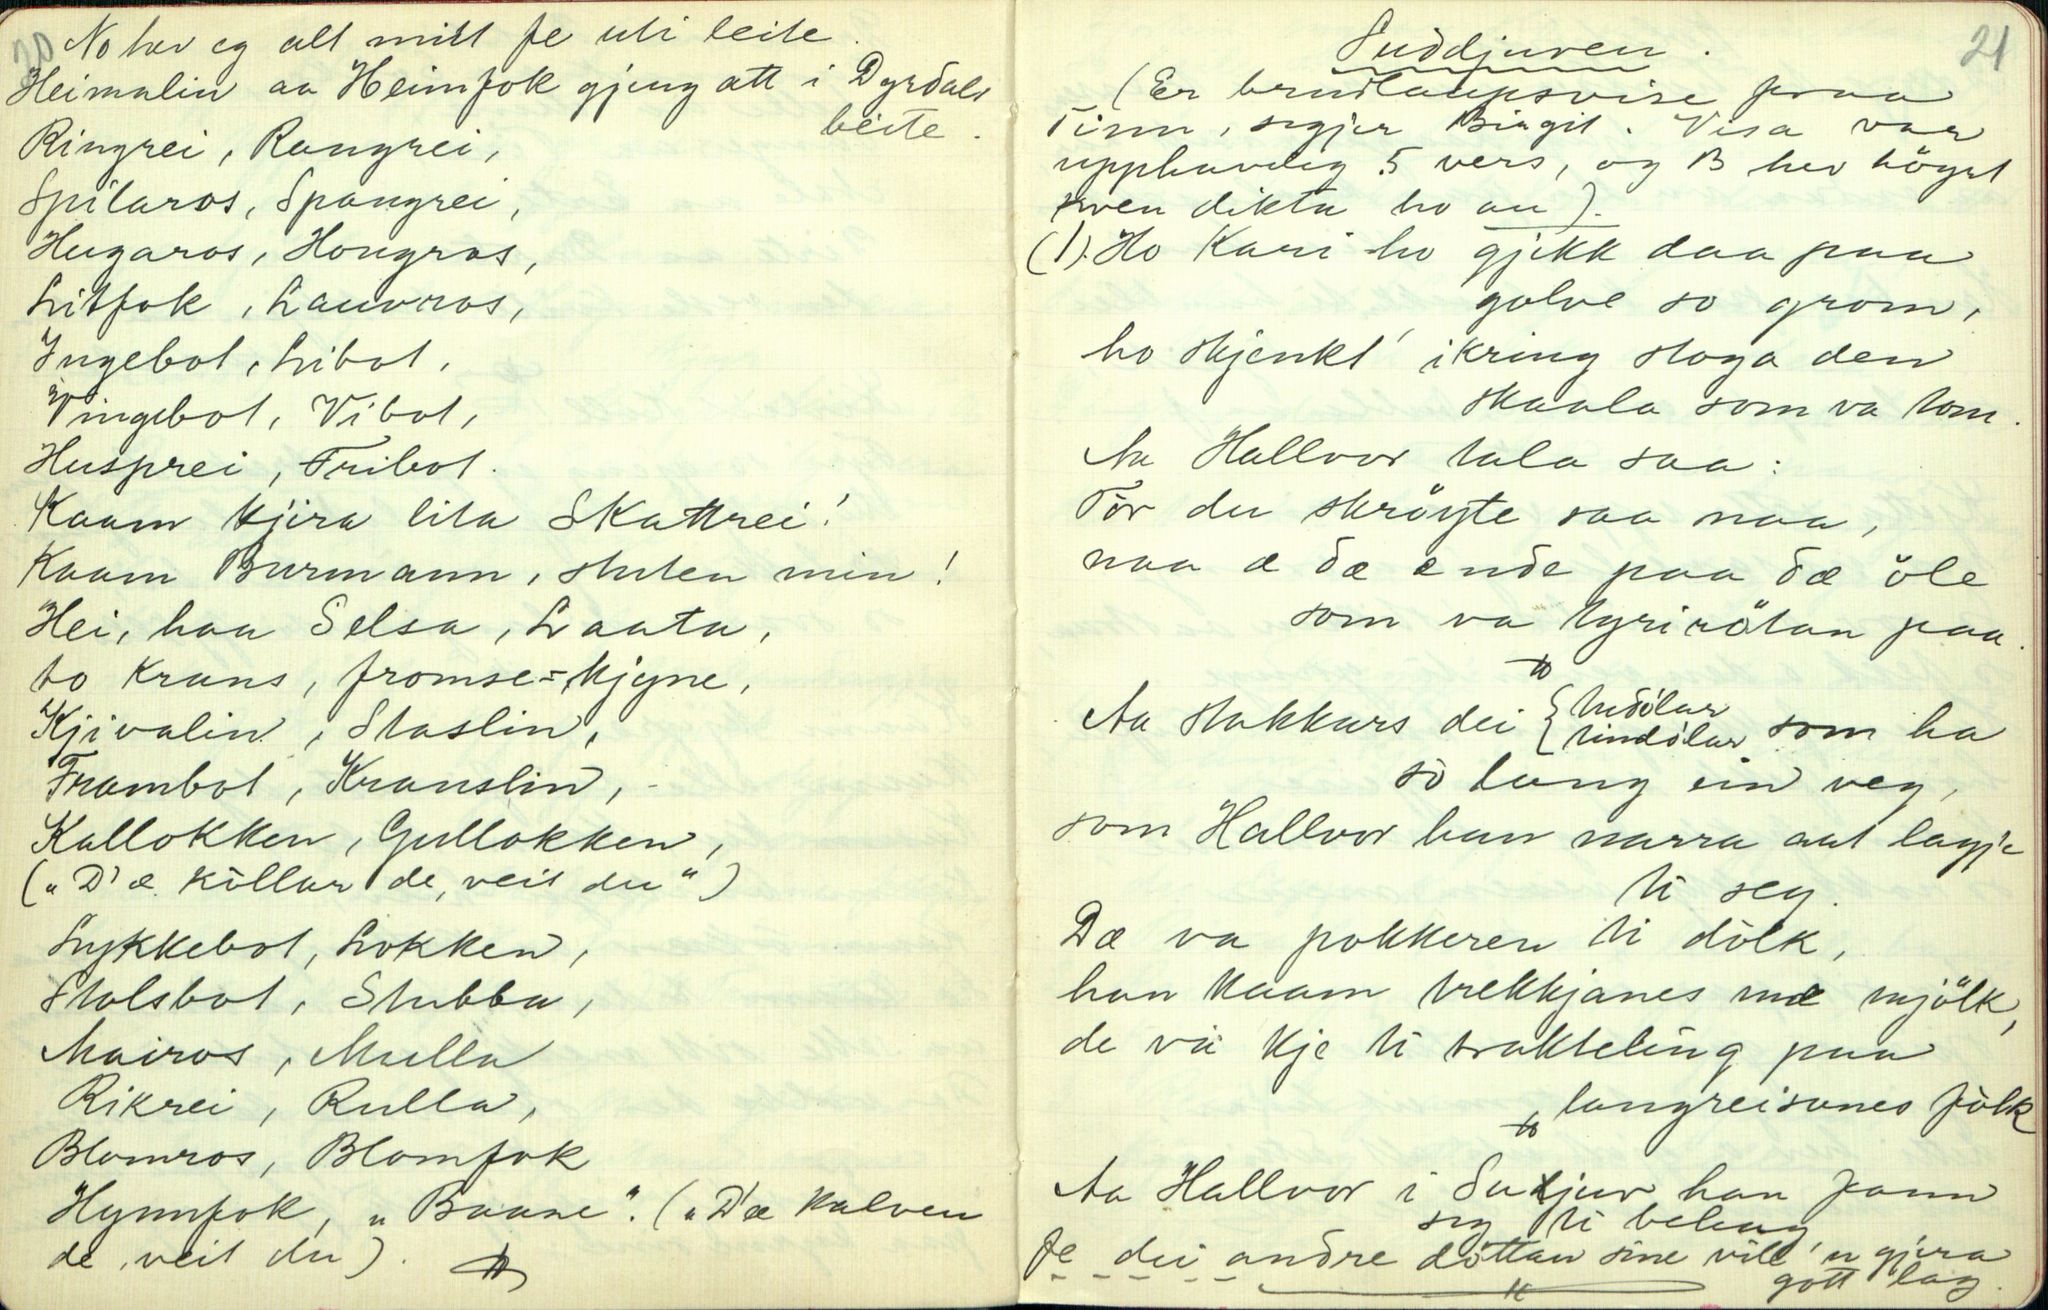 20
No hev eg alt mitt fe uti leite.
Heimalin aa Heimfok gjeng att i Dyrdals
beite.
Ringrei, Rangrei,
Spilaros, Spangrei,
Hugaros, Hongros,
Litfok, Lauvros,
Ingebot, Libot,
Vingebot, Vibot,
Husprei, Fribot.
Kaam kjæra lita Skattrei!
Kaam Burmann, stuten min!
Hei, haa Selsa, Laata,
to Krans, fromse-kjyne,
Kjivalin, Staslin,
Frambot, Kranslin,
Kallokken, Gullokken,
(„D'æ kòllar de, veit du“)
Lykkebot, Lokken,
Stolsbot, Stubba,
Mairos, Mulla
Rikrei, Rulla,
Blomros, Blomfok
Hynnfok, „Baase“. („D'æ kalven
de, veit du).
21
Suddjuven.
(Er brudlaupsvise fraa
Tinn, segjer Birgit. Visa var
upphavleg 5 vers, og B hev høyrt
kven dikta ho au).
(1). Ho Kari ho gjekk daa paa
golve so grom,
ho skjenkt' ikring stoga den
skaala som va tom.
Aa Hallvor tala saa:
Før du skrøyte saa naa,
naa æ dæ ende paa dæ öle
som va tyrirötan paa.
Aa stakkars dei {tudòlar
tindòlar som ha
sò lang ein veg,
som Hallvor han narra aat lagje
ti seg.
Dæ va pokkeren ti dòlk,
han kaam trekkjanes mæ mjòlk,
de va kje ti trakteling paa
langreisanes fòlk
Aa Hallvor i Sudjuv han fann
seg ti behag
fe dei andre dòttan sine vill'n gjera
gott lag.